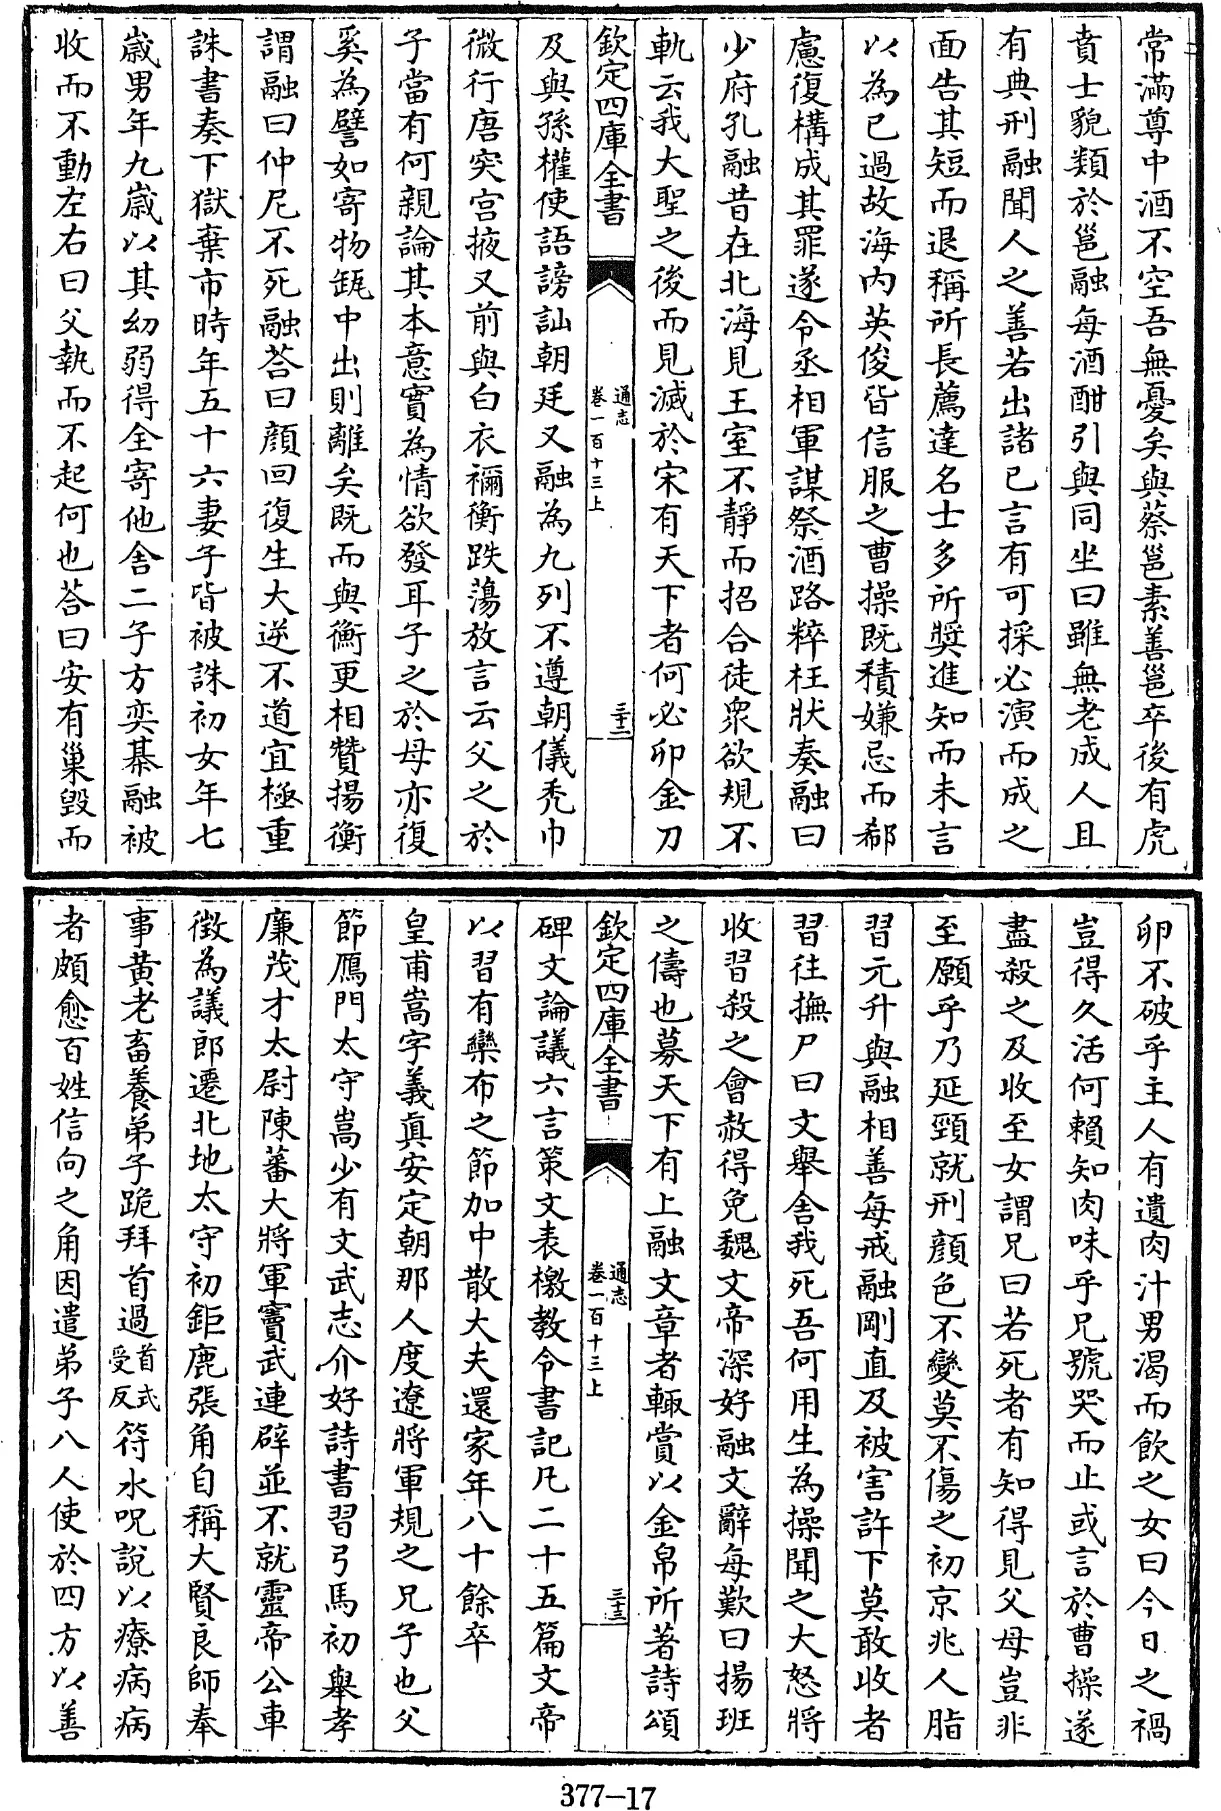 常滿尊中酒不空吾無憂矣與蔡邕素善邕卒後有虎
賁士貌類於邕融每酒酣引與同坐曰雖無老成人且
有典刑融聞人之善若出諸已言有可採必演而成之
面告其短而退稱所長薦達名士多所奬進知而未言
以為已過故海内英俊皆信服之曹操既積嫌忌而郗
慮復構成其罪遂令丞相軍謀祭酒路粹枉狀奏融曰
少府孔融昔在北海見王室不靜而招合徒衆欲規不
軌云我大聖之後而見滅於宋有天下者何必卯金刀
欽定四庫全書
通志
卷一百十三上
三十二
及與孫權使語謗訕朝廷又融為九列不遵朝儀秃巾
微行唐突宫掖又前與白衣禰衡跌蕩放言云父之於
子當有何親論其本意實為情欲發耳子之於母亦復
奚為譬如寄物缻中出則離矣既而與衡更相贊揚衡
謂融曰仲尼不死融荅曰顔回復生大逆不道宜極重
誅書奏下獄棄市時年五十六妻子皆被誅初女年七
歲男年九歲以其幼弱得全寄他舍二子方奕棊融被
收而不動左右曰父執而不起何也荅曰安有巢毀而
卵不破乎主人有遺肉汁男渴而飲之女曰今日之禍
豈得久活何賴知肉味乎兄號哭而止或言於曹操遂
盡殺之及收至女謂兄曰若死者有知得見父母豈非
至願乎乃延頸就刑顔色不變莫不傷之初京兆人脂
習元升與融相善每戒融剛直及被害許下莫敢收者
習往撫尸曰文舉舍我死吾何用生為操聞之大怒將
收習殺之會赦得免魏文帝深好融文辭每歎曰揚班
之儔也募天下有上融文章者輙賞以金帛所著詩頌
欽定四庫全書
通志
卷一百十三上
三十三
碑文論議六言策文表檄教令書記凡二十五篇文帝
以習有欒布之節加中散大夫還家年八十餘卒
皇甫嵩字義真安定朝那人度遼將軍規之兄子也父
節鴈門太守嵩少有文武志介好詩書習弓馬初舉孝
廉茂才太尉陳蕃大將軍竇武連辟並不就靈帝公車
徵為議郎遷北地太守初鉅鹿張角自稱大賢良師奉
事黄老畜養弟子跪拜首過首式受反符水呪說以療病病
者頗愈百姓信向之角因遣弟子八人使於四方以善
377-17